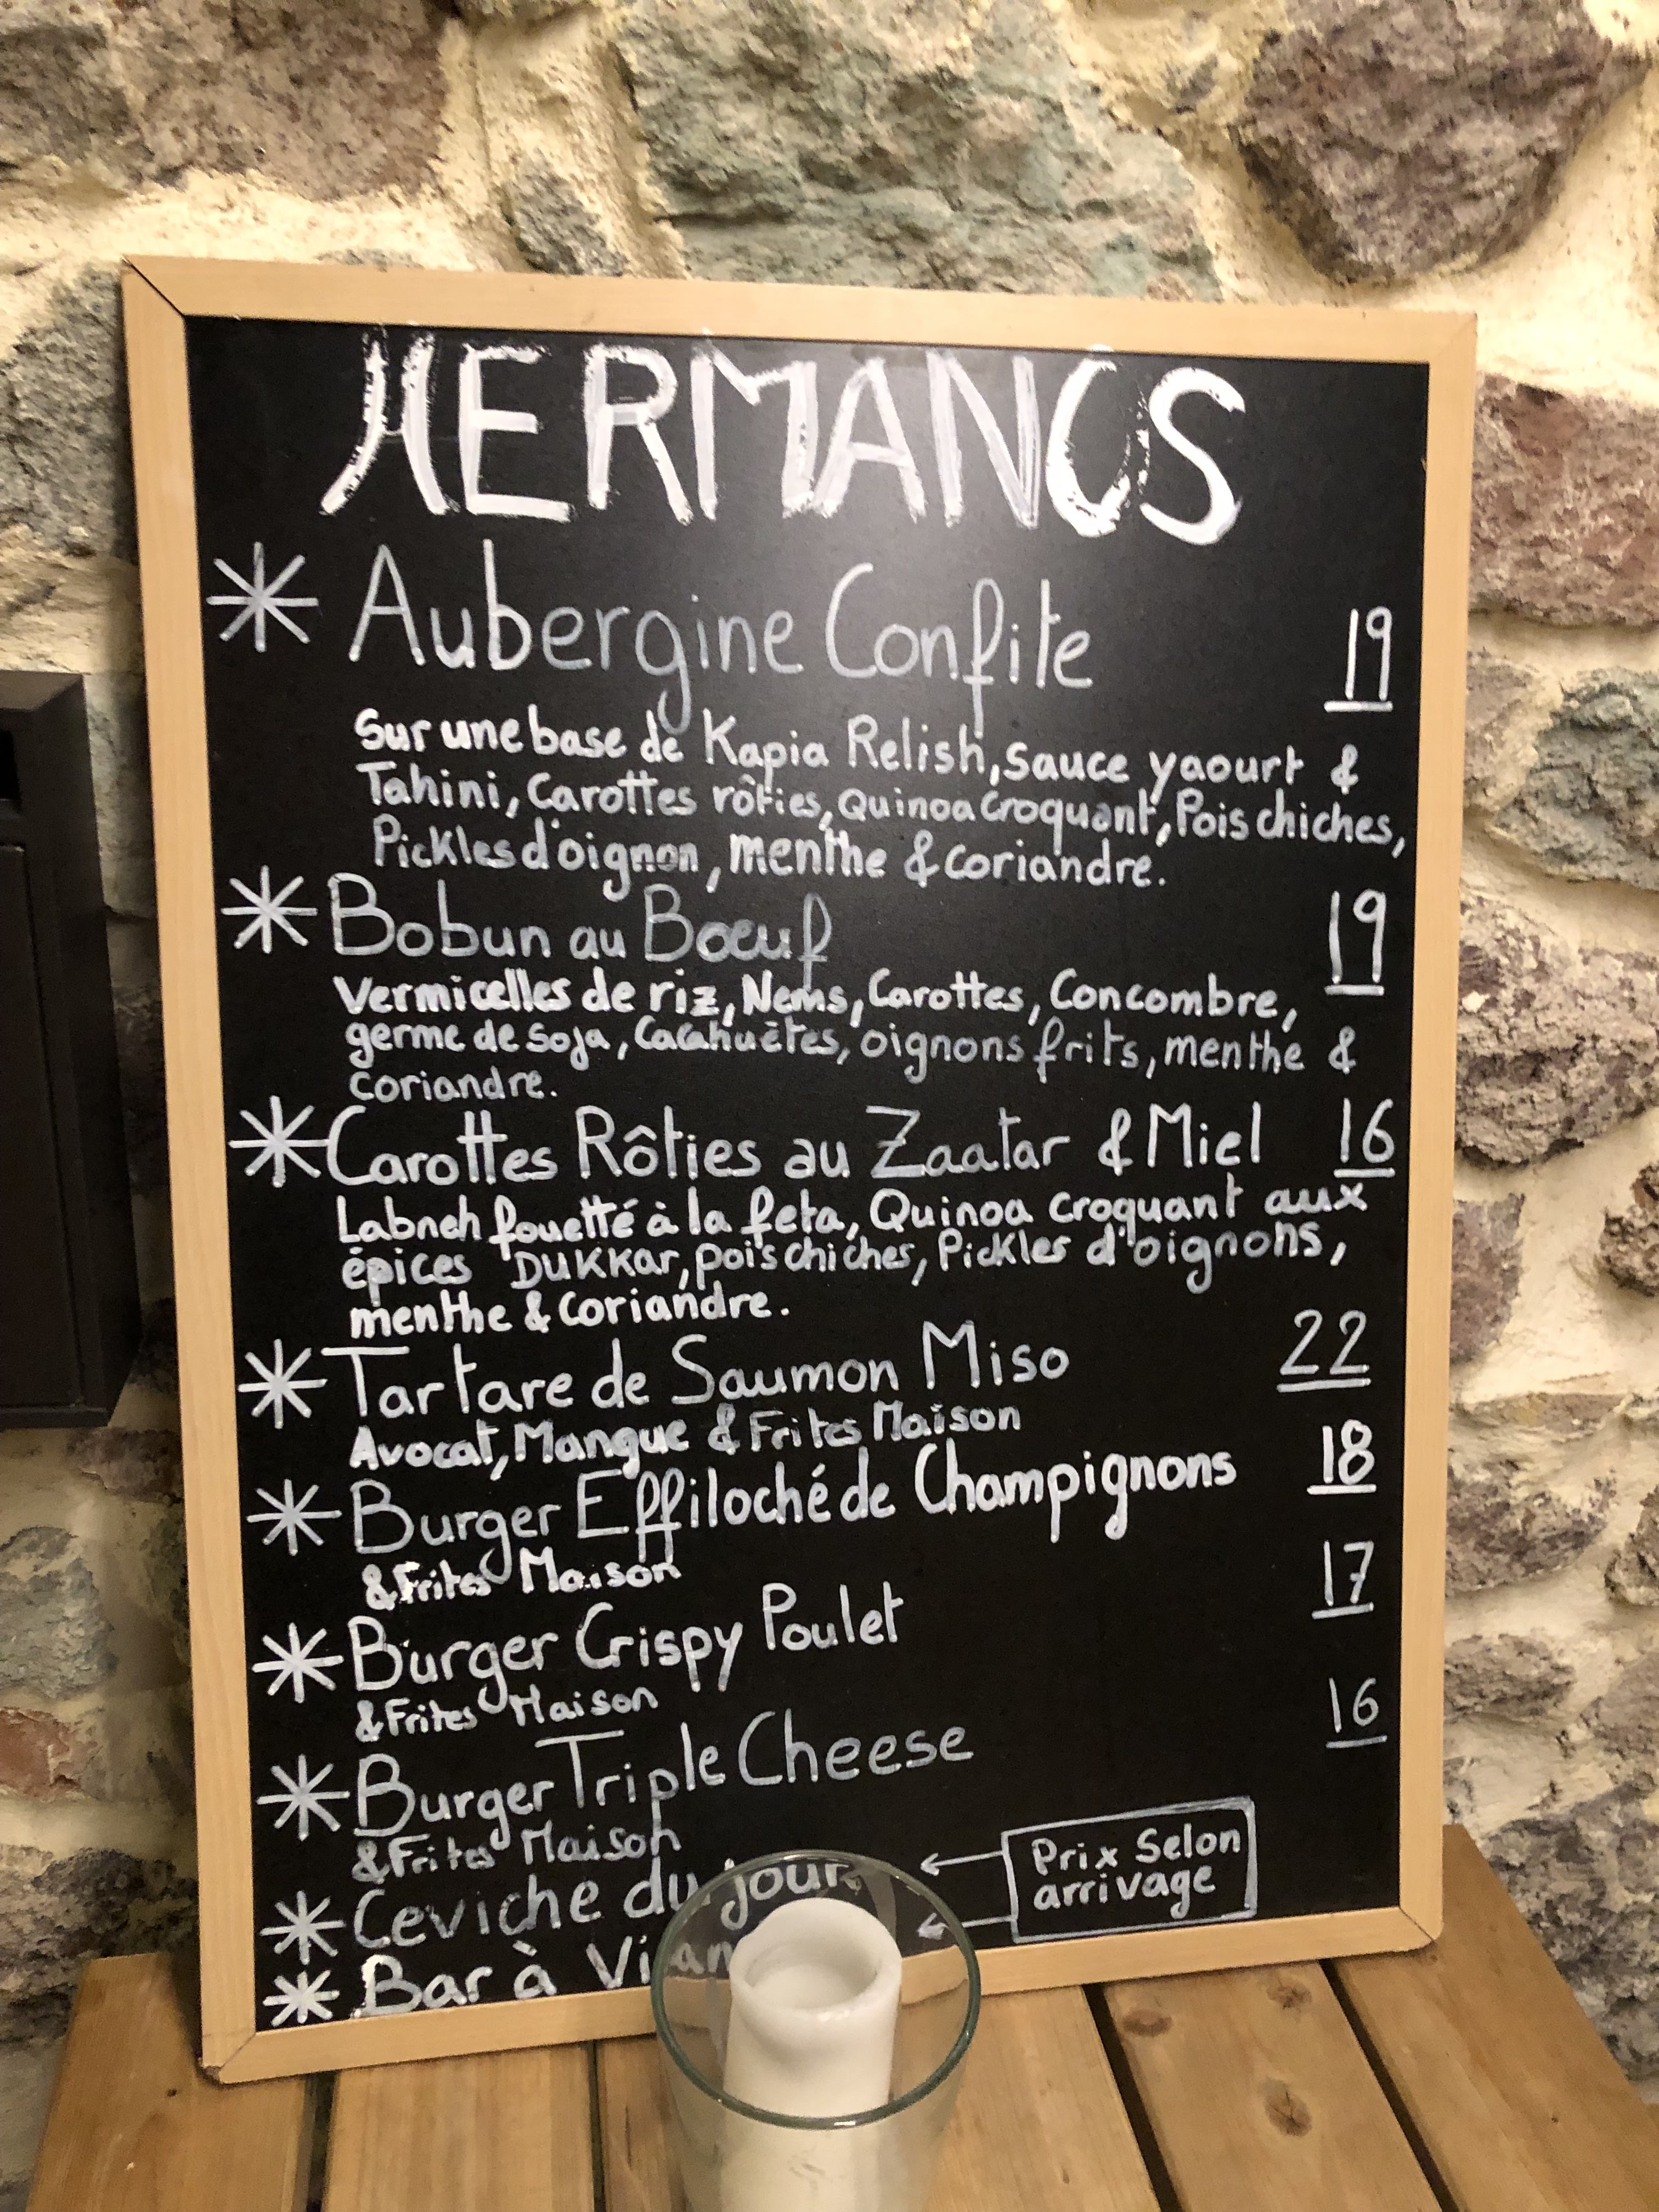 HERMANOS
* Aubergine Confite 19
Sur une base de Kapia Relish, sauce yaourt &
Tahini, Carottes rôties, Quinoa croquant, Pois chiches,
Pickles d'oignon, menthe & coriandre.
* Bobun au Bœuf 19
Vermicelles de riz, Nems, Carottes, Concombre,
germe de Soja, Cacahuètes, oignons frits, menthe &
Coriandre.
* Carottes Rôties au Zaatar & Miel 16
Labneh fouetté à la feta, Quinoa croquant aux
épices DUKKAR, pois chiches, Pickles d'oignons,
menthe & Coriandre.
* Tartare de Saumon Miso 22
Avocat, Mangue & Frites Maison
* Burger Effiloché de Champignons 18
& Frites Maison
* Burger Crispy Poulet 17
& Frites Maison
* Burger Triple Cheese 16
& Frites Maison
* Ceviche du jour
* Bar à
Prix Selon
arrivage